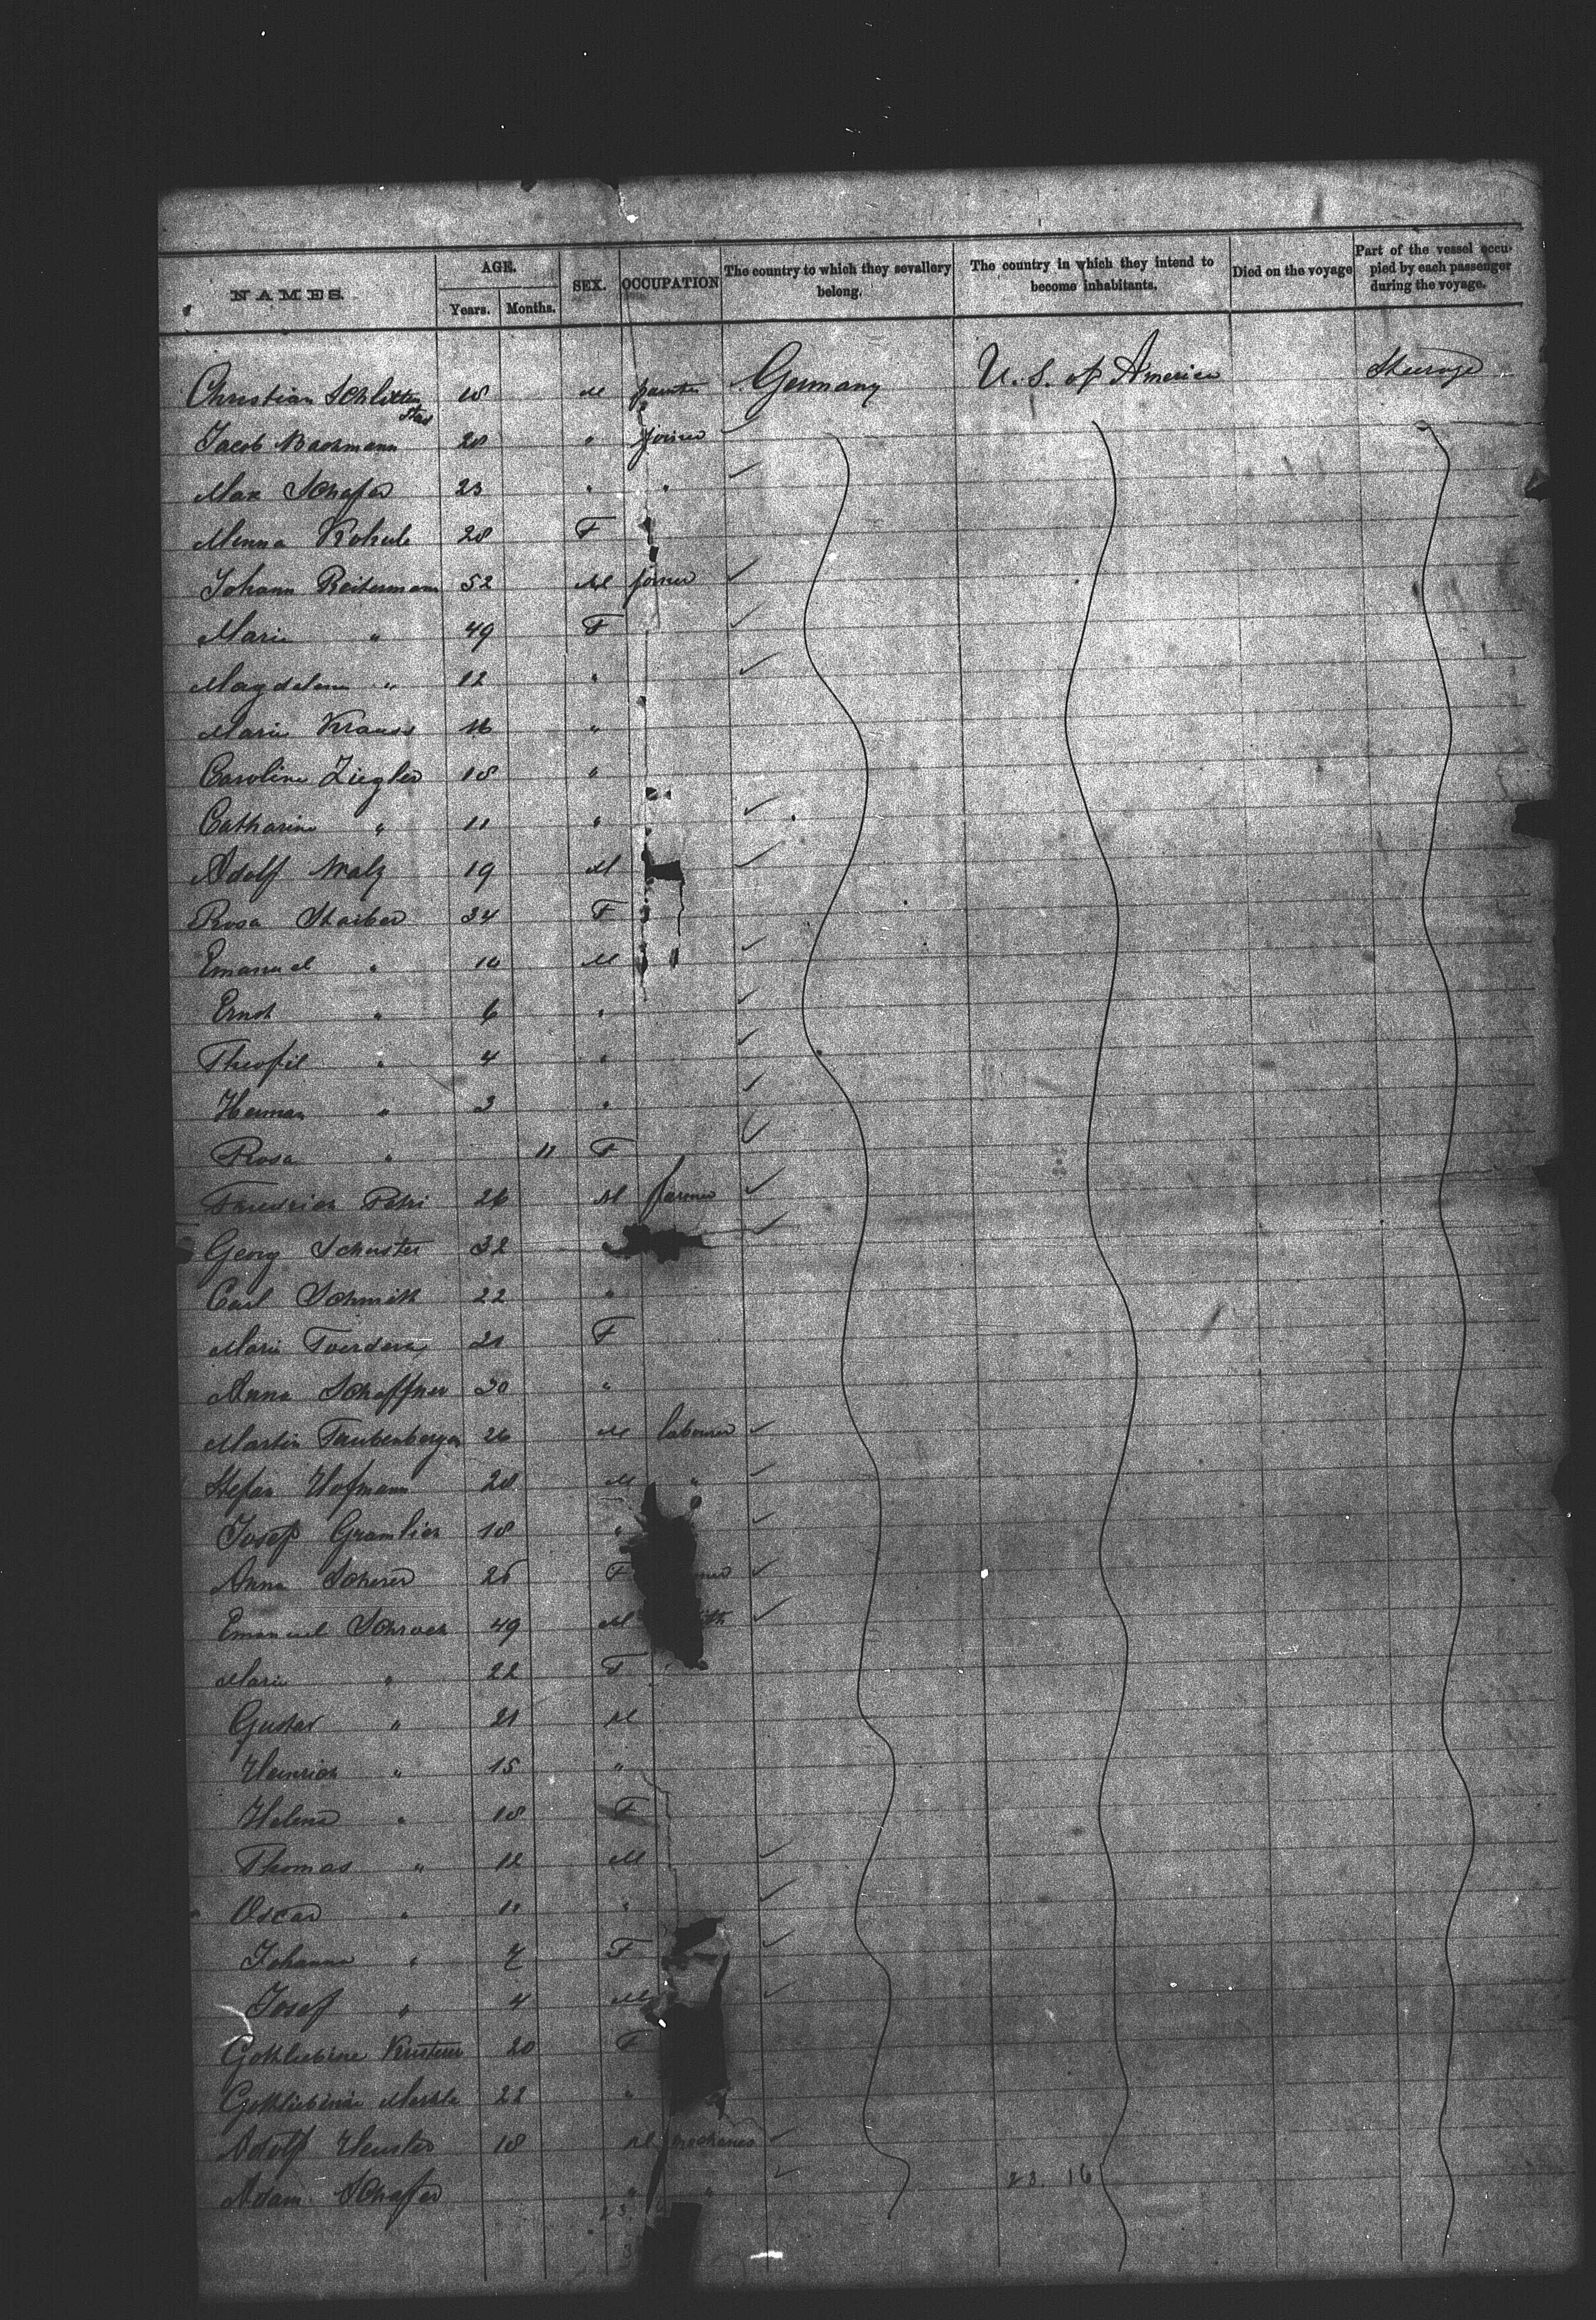 NAMES. AGE. SEX. OCCUPATION The country to which they sevallery belong. The country in which they intend to become inhabitants. Died on the voyage Part of the vessel occupied by each passenger during the voyage.
Years. Months.
Christian 18 M painter Germany U. S. of America Steerage
Jacob Bachmann 28 " joiner
Max Schafer 23 " "
Menna 28 F
Johann Reitermann 52 M joiner
Marie " 49 F
Magdalena " 12 "
Marie Krauss 16 "
Caroline Ziegler 18 "
Catharine " 11 "
Adolf Walz 19 M
Rosa Staiber 34 F
Emanuel " M
Ernst " 6 "
Theofil " 4 "
Herman " "
Rosa " 11 F
Friedrich Petri 26 M farmer
Georg Schuster 32
Carl Schmith 22 "
Marie 21 F
Anna Schaffner 30 "
Martin Taubenberger 26 M labourer
Stefan Hofmann 28 M "
Josef Gramlich 18 "
Anna Scherer F
Emanuel Schroch 49 M
Marie " 22 F
Gustav " 21 M
Heinrich " 15 "
Helena " 18 F
Thomas " M
Oscar " "
Johanna " 7 F
Josef " 4 M
Gottliebine 20 F
Gottliebine 22 "
Adolf 18 M mechanic
Adam Schafer " "
23. 16
23.